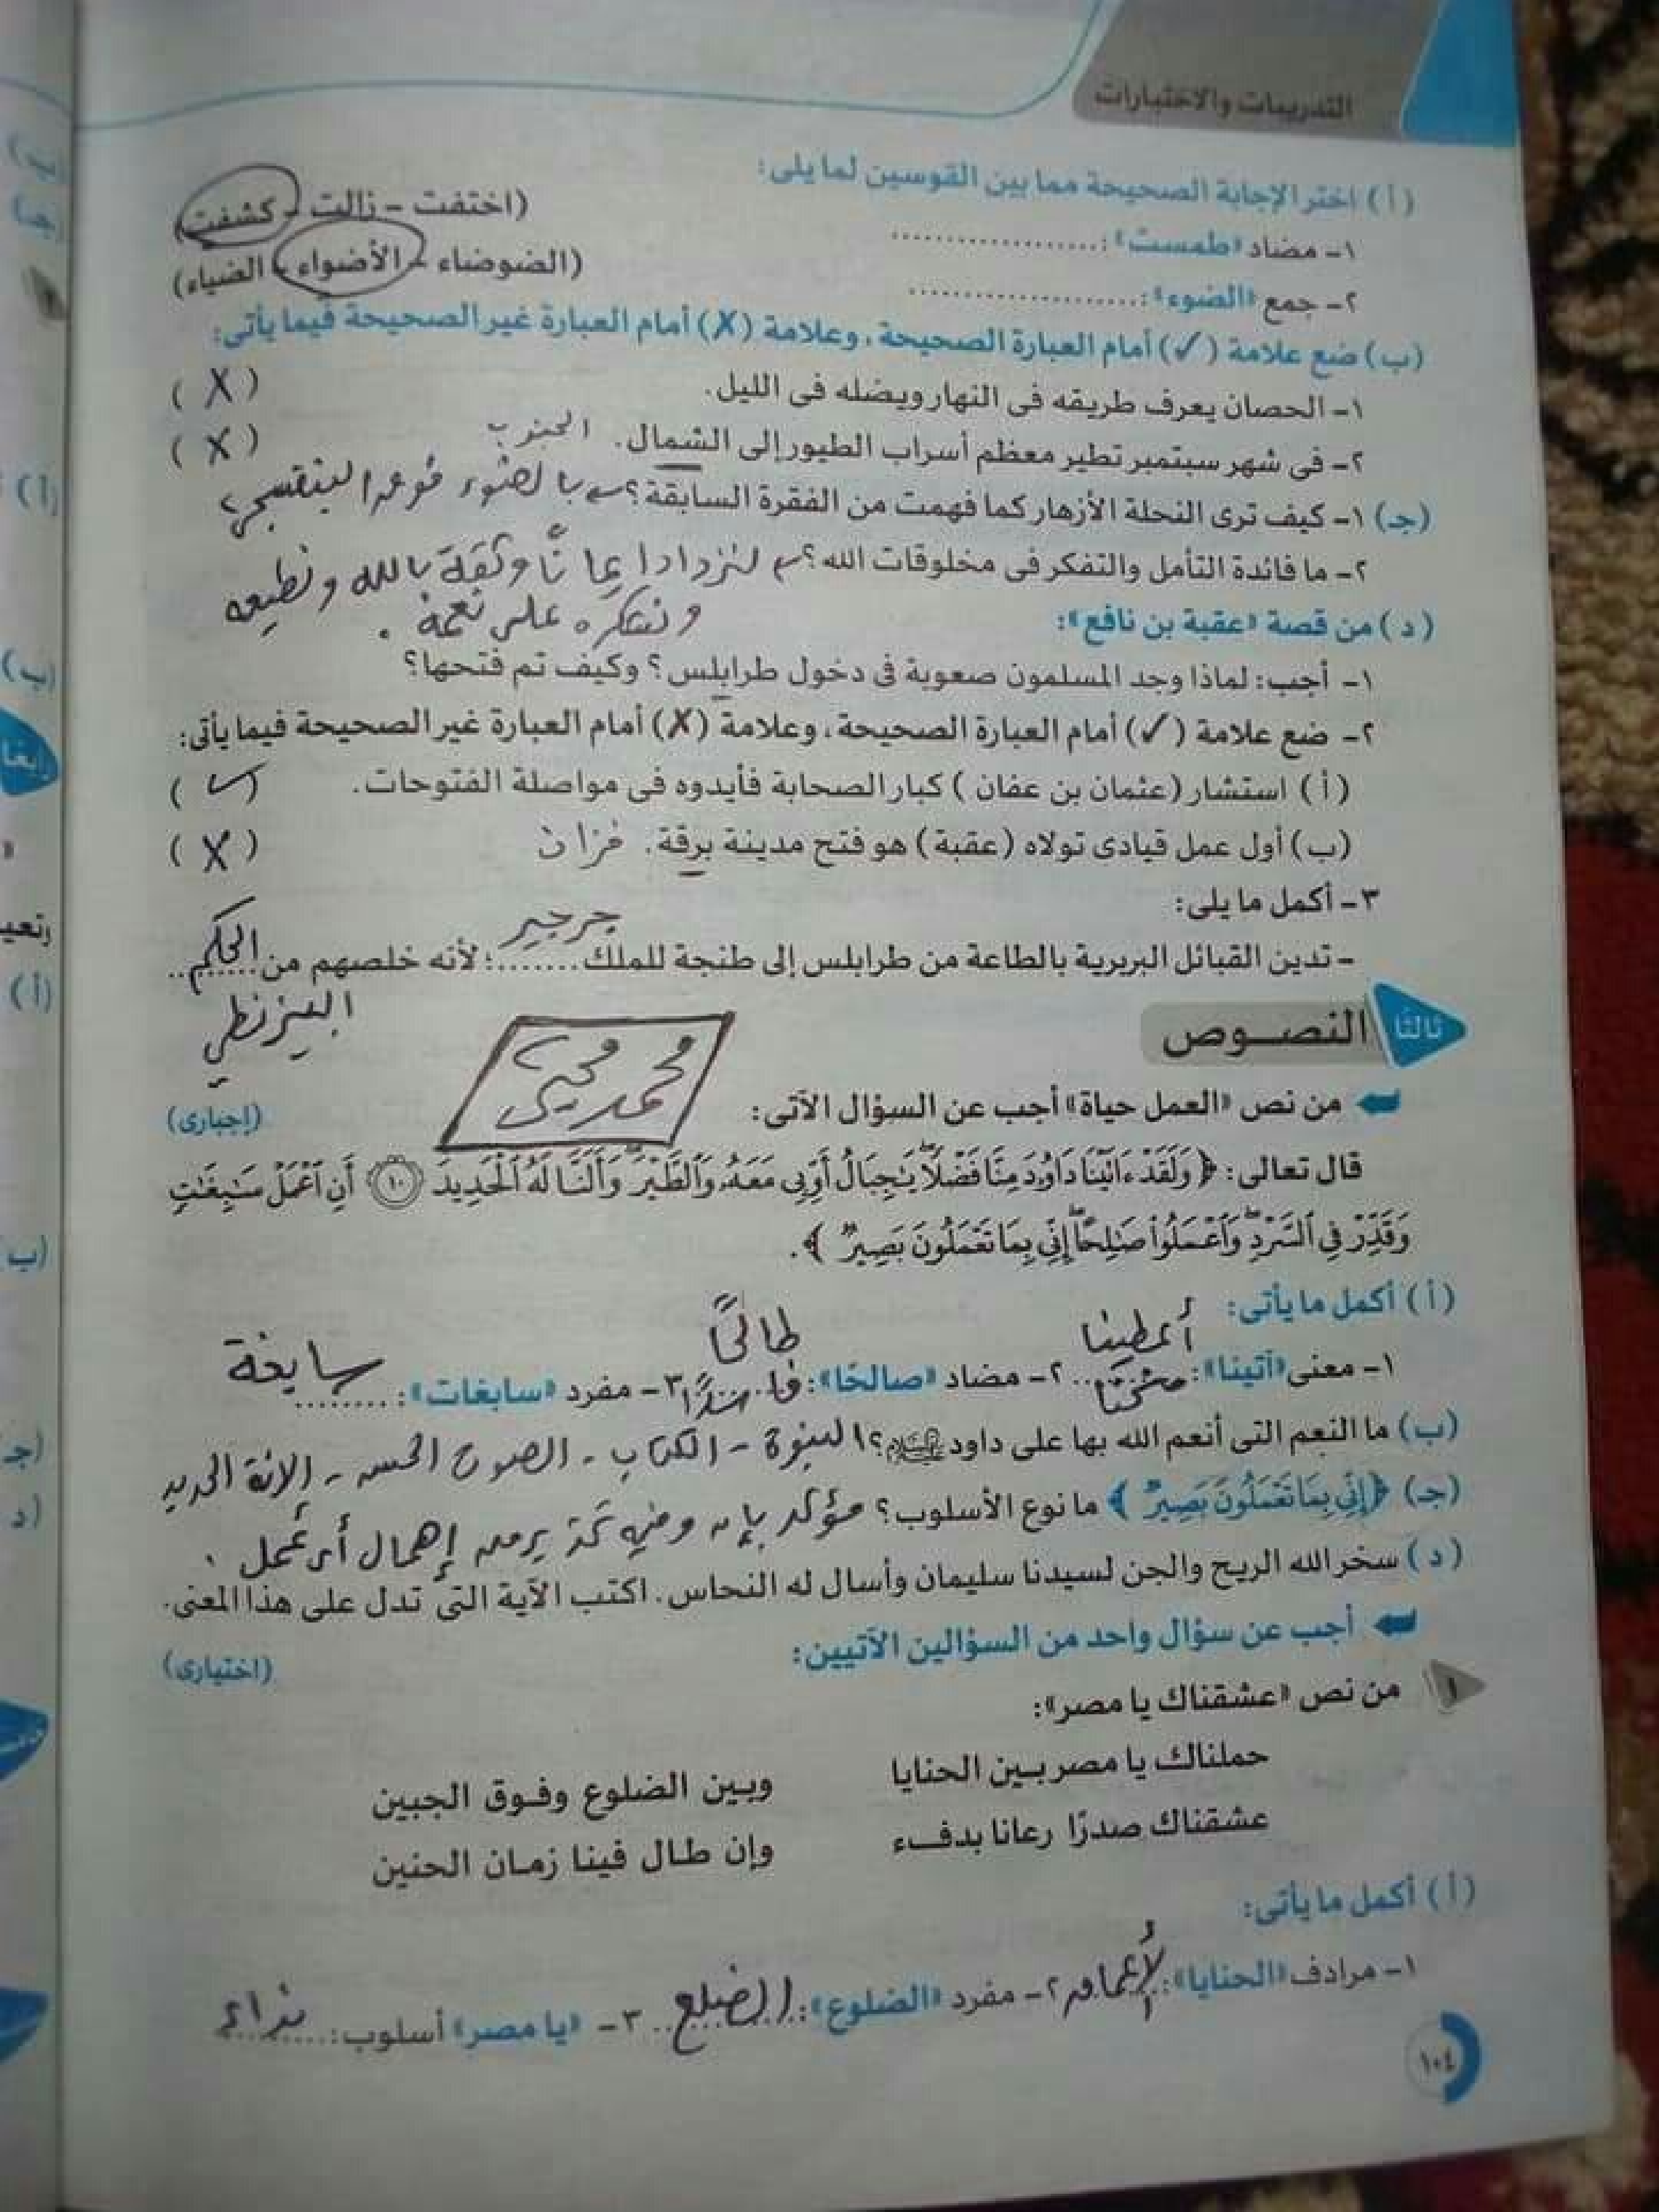 التدريبات والاختبارات
(أ) اختر الإجابة الصحيحة مما بين القوسين لما يلى:
١- مضاد «طمست»: .................... (اختفت - زالت - كشفت)
٢- جمع «الضوء»: .................... (الضوضاء - الأضواء - الضياء)
(ب) ضع علامة (✓) أمام العبارة الصحيحة، وعلامة (✗) أمام العبارة غير الصحيحة فيما يأتى:
١- الحصان يعرف طريقه فى النهار ويضله فى الليل. (X)
٢- فى شهر سبتمبر تطير معظم أسراب الطيور إلى الشمال. الجنوب (X)
(جـ) ١- كيف ترى النحلة الأزهار كما فهمت من الفقرة السابقة؟ بالضوء فوق البنفسجى
٢- ما فائدة التأمل والتفكر فى مخلوقات الله؟ لنزداد إيمانًا وثقة بالله ونطيعه
ونشكره على نعمه.
(د) من قصة «عقبة بن نافع»:
١- أجب: لماذا وجد المسلمون صعوبة فى دخول طرابلس؟ وكيف تم فتحها؟
٢- ضع علامة (✓) أمام العبارة الصحيحة، وعلامة (✗) أمام العبارة غير الصحيحة فيما يأتى:
(أ) استشار (عثمان بن عفان) كبار الصحابة فأيدوه فى مواصلة الفتوحات. (✓)
(ب) أول عمل قيادى تولاه (عقبة) هو فتح مدينة برقة. فزان (X)
٣- أكمل ما يلى:
- تدين القبائل البربرية بالطاعة من طرابلس إلى طنجة للملك جرجير.......؛ لأنه خلصهم من الحكم
البيزنطى
ثالثا النصـوص
محمد محيى
من نص «العمل حياة» أجب عن السؤال الآتى: (إجبارى)
قال تعالى: ﴿ وَلَقَدْ ءَاتَيْنَا دَاوُۥدَ مِنَّا فَضْلًا يَٰجِبَالُ أَوِّبِى مَعَهُۥ وَٱلطَّيْرَ وَأَلَنَّا لَهُ ٱلْحَدِيدَ ١٠ أَنِ ٱعْمَلْ سَٰبِغَٰتٍ
وَقَدِّرْ فِى ٱلسَّرْدِ وَٱعْمَلُوا۟ صَٰلِحًا إِنِّى بِمَا تَعْمَلُونَ بَصِيرٌ ﴾.
(أ) أكمل ما يأتى:
أعطينا طالحًا سابغة
١- معنى «آتينا»: منحنا.. ٢- مضاد «صالحًا»: فاسدًا ٣- مفرد «سابغات»: .........
(ب) ما النعم التى أنعم الله بها على داود عليه السلام؟ النبوة - الكتاب - الصوت الحسن - إلانة الحديد
(جـ) ﴿إِنِّى بِمَا تَعْمَلُونَ بَصِيرٌ﴾ ما نوع الأسلوب؟ مؤكد بإن وفيه تحذير من إهمال أى عمل.
(د) سخر الله الريح والجن لسيدنا سليمان وأسال له النحاس. اكتب الآية التى تدل على هذا المعنى.
أجب عن سؤال واحد من السؤالين الآتيين: (اختيارى)
١ من نص «عشقناك يا مصر»:
حملناك يا مصر بـين الحنايا وبـين الضلوع وفـوق الجبين
عشقناك صدرًا رعانا بدفـء وإن طـال فينا زمـان الحنين
(أ) أكمل ما يأتى:
١- مرادف «الحنايا»: الأعماق ٢- مفرد «الضلوع»: الضلع ٣- «يا مصر» أسلوب: نداء
١٠٤